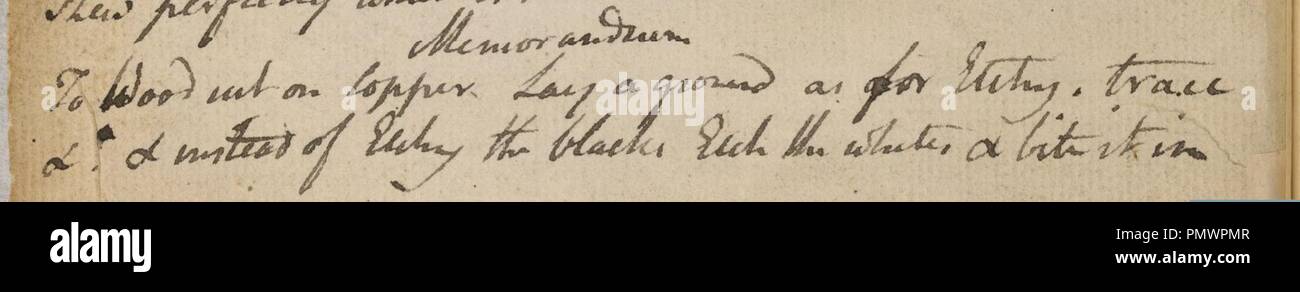 shew perfectly
Memorandum
To Wood cut on Copper Lay a ground as for Etchg. trace
&c. & instead of Etching the blacks Etch the whites & bite it in
alamy
Image ID: PMWPMR
www.alamy.com